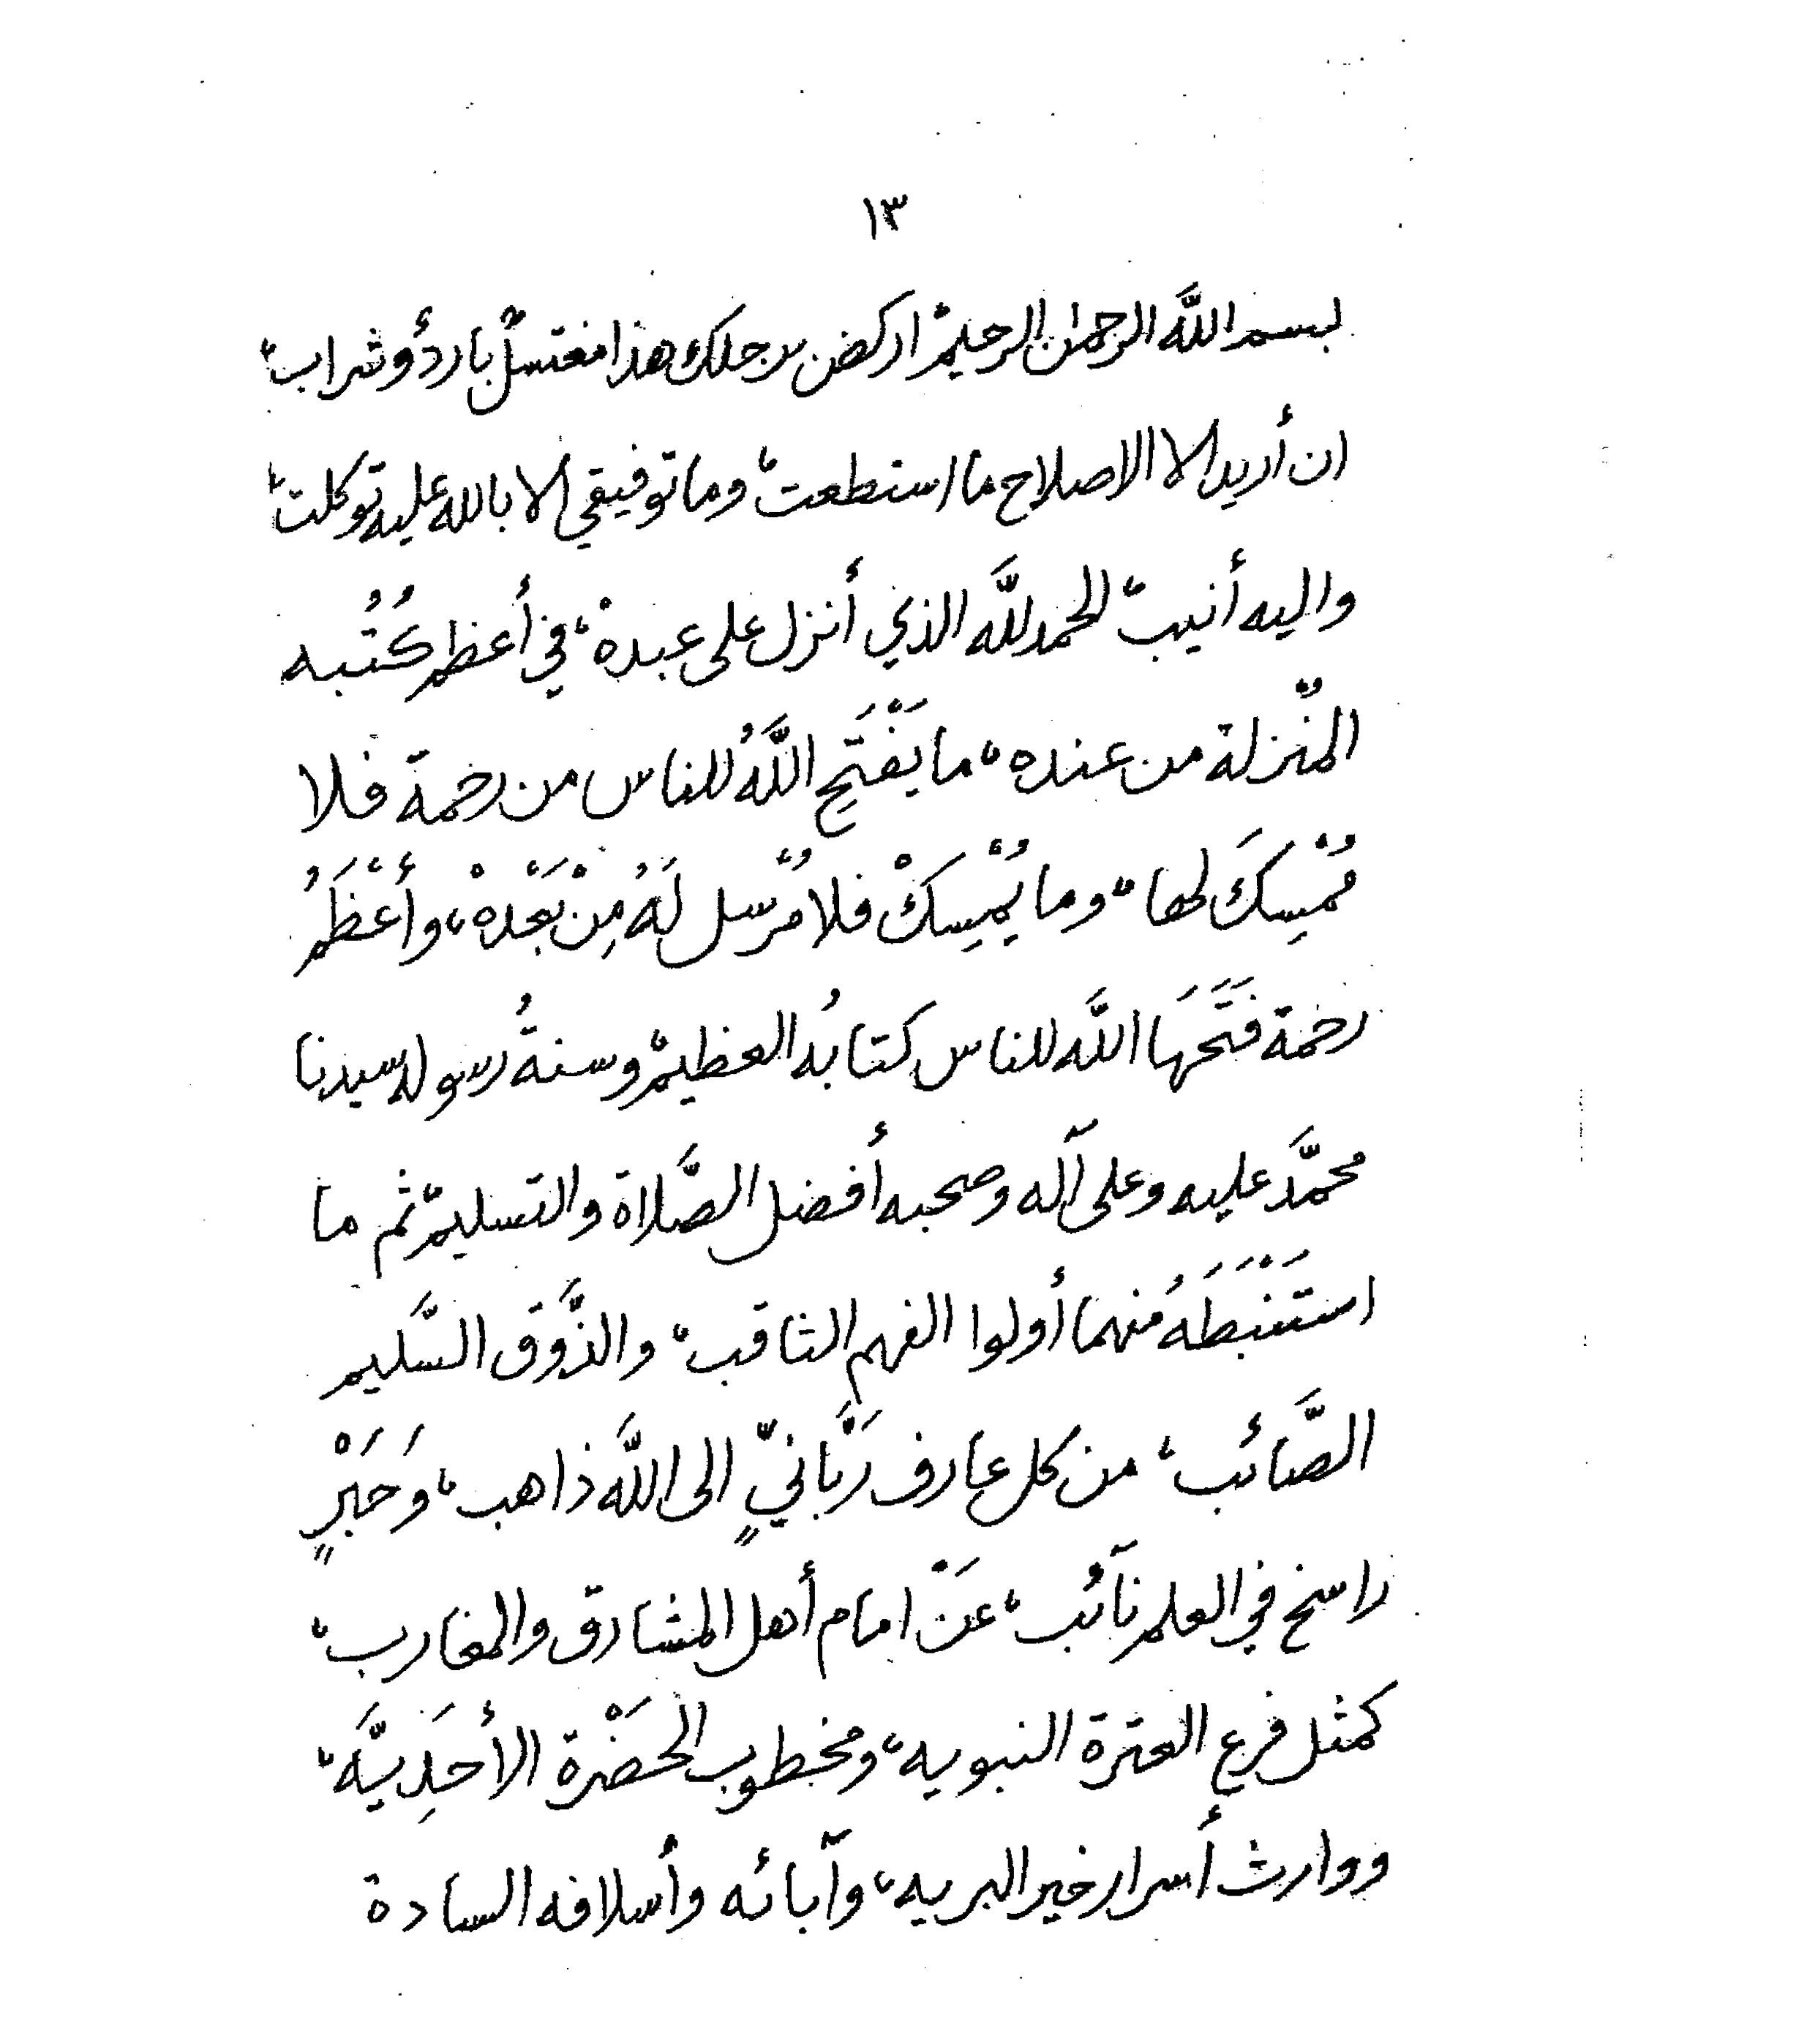 ١٣
بسم اللَّه الرحمن الرحيم، اركض برجلك هذا مغتسل بارد وشراب،
ان أريد الا الاصلاح ما استطعت، وما توفيقي الا بالله عليه توكلت،
واليه أنيب، الحمد للَّه الذي أنزل على عبده، في أعظم كُتُبه
المنْزلة من عنده، ما يَفْتَحِ اللَّهُ للناس من رحمة فلا
مُمْسِكَ لها، وما يُمْسِكْ فلا مُرْسل لَهُ مِنْ بَعْده، وأَعْظَمُ
رحمة فَتَحَهَا اللَّه للناس كتابُه العظيم، وسنةُ رسوله سيدنا
محمَّد عليه وعلى آله وصحبه أفضل الصَّلاة والتسليم، ثم ما
استَنْبَطَهُ منهما أولوا الفهم الثاقب، والذَّوق السَّليم
الصَّائب، من كل عارف رَبَّانيٍّ الى اللَّه ذاهب، وَحَبْرٍ
راسخ في العلم نآئب، عَنْ امام أهل المشارق والمغارب،
كمثل فرع العترة النبويه، ومخطوب الحَضْرة الأحَدِيَّه،
ووارث أسرار خير البريه، وآبائه وأسلافه السادة